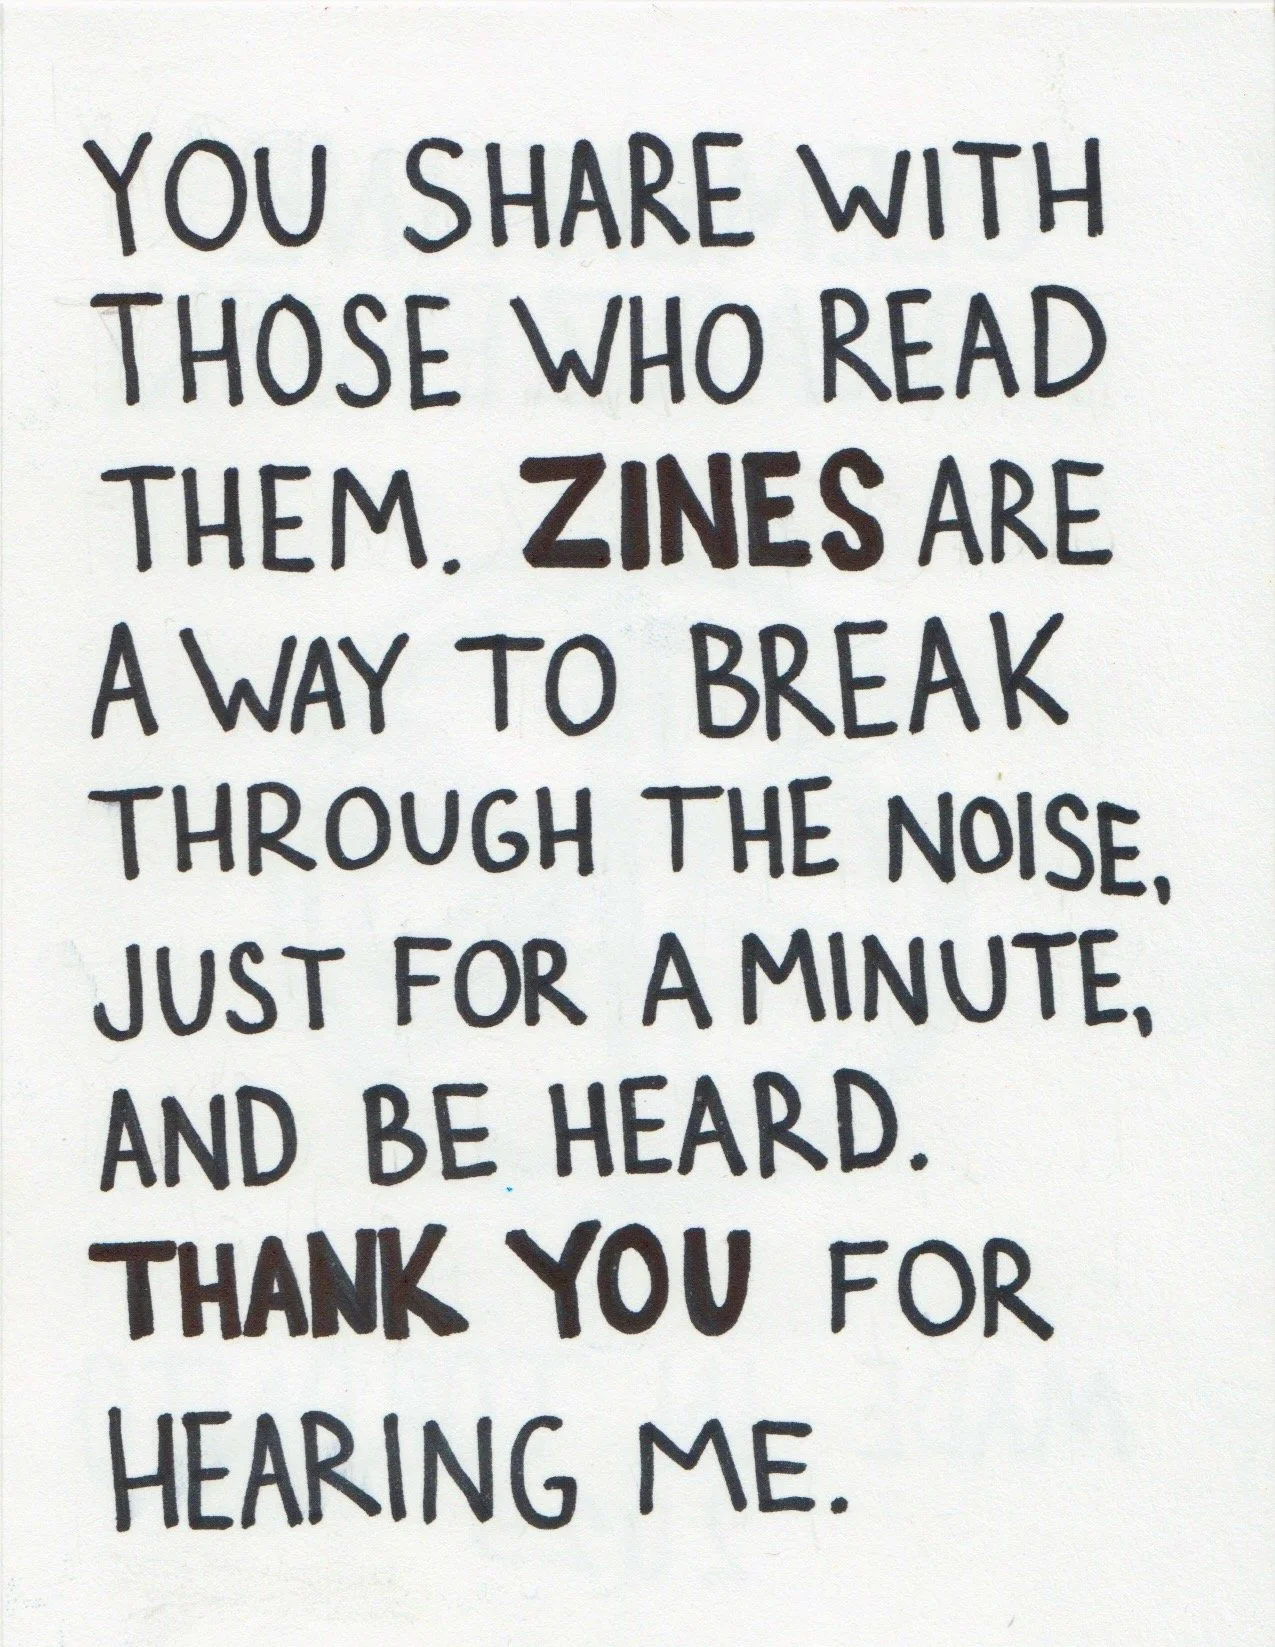 YOU SHARE WITH
THOSE WHO READ
THEM. ZINES ARE
A WAY TO BREAK
THROUGH THE NOISE,
JUST FOR A MINUTE,
AND BE HEARD.
THANK YOU FOR
HEARING ME.